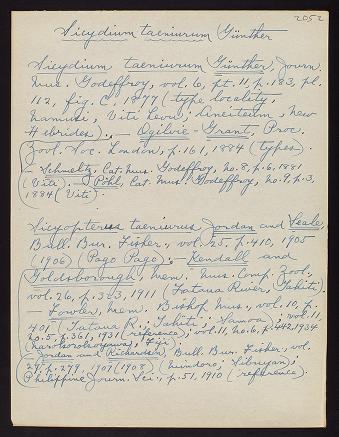 2052
Sicydium taeniurum Günther
Sicydium taeniurum Günther, Journ.
Mus. Godeffroy, vol. 6, pt. 11, p. 183, pl.
112, fig. C, 1877 (type locality,
Viti Levu; Aneiteum, New
Hebrides). — Ogilvie-Grant, Proc.
Zool. Soc. London, p. 161, 1884 (types).
— Schmeltz, Cat. Mus. Godeffroy, no. 8, p. 6, 1881
(Viti). — Pöhl, Cat. Mus. Godeffroy, no. 9, p. 3,
1884 (Viti).
Sicyopterus taeniurus Jordan and Seale,
Bull. Bur. Fisher., vol. 25, p. 410, 1905
(1906) (Pago Pago). — Kendall and
Goldsborough, Mem. Mus. Comp. Zool.,
vol. 26, p. 323, 1911 (Fataua River, Tahiti).
— Fowler, Mem. Bishop Mus., vol. 10, p.
401 (Fataua R., Tahiti; Samoa); vol. 11,
no. 5, p. 361, 1931 (reference); vol. 11, no. 6, p. 442, 1934
Fiji).
— Jordan and Richardson, Bull. Bur. Fisher., vol.
27, p. 279, 1907 (1908) (Mindoro; Sibuyan);
Philippine Journ. Sci., p. 51, 1910 (reference).